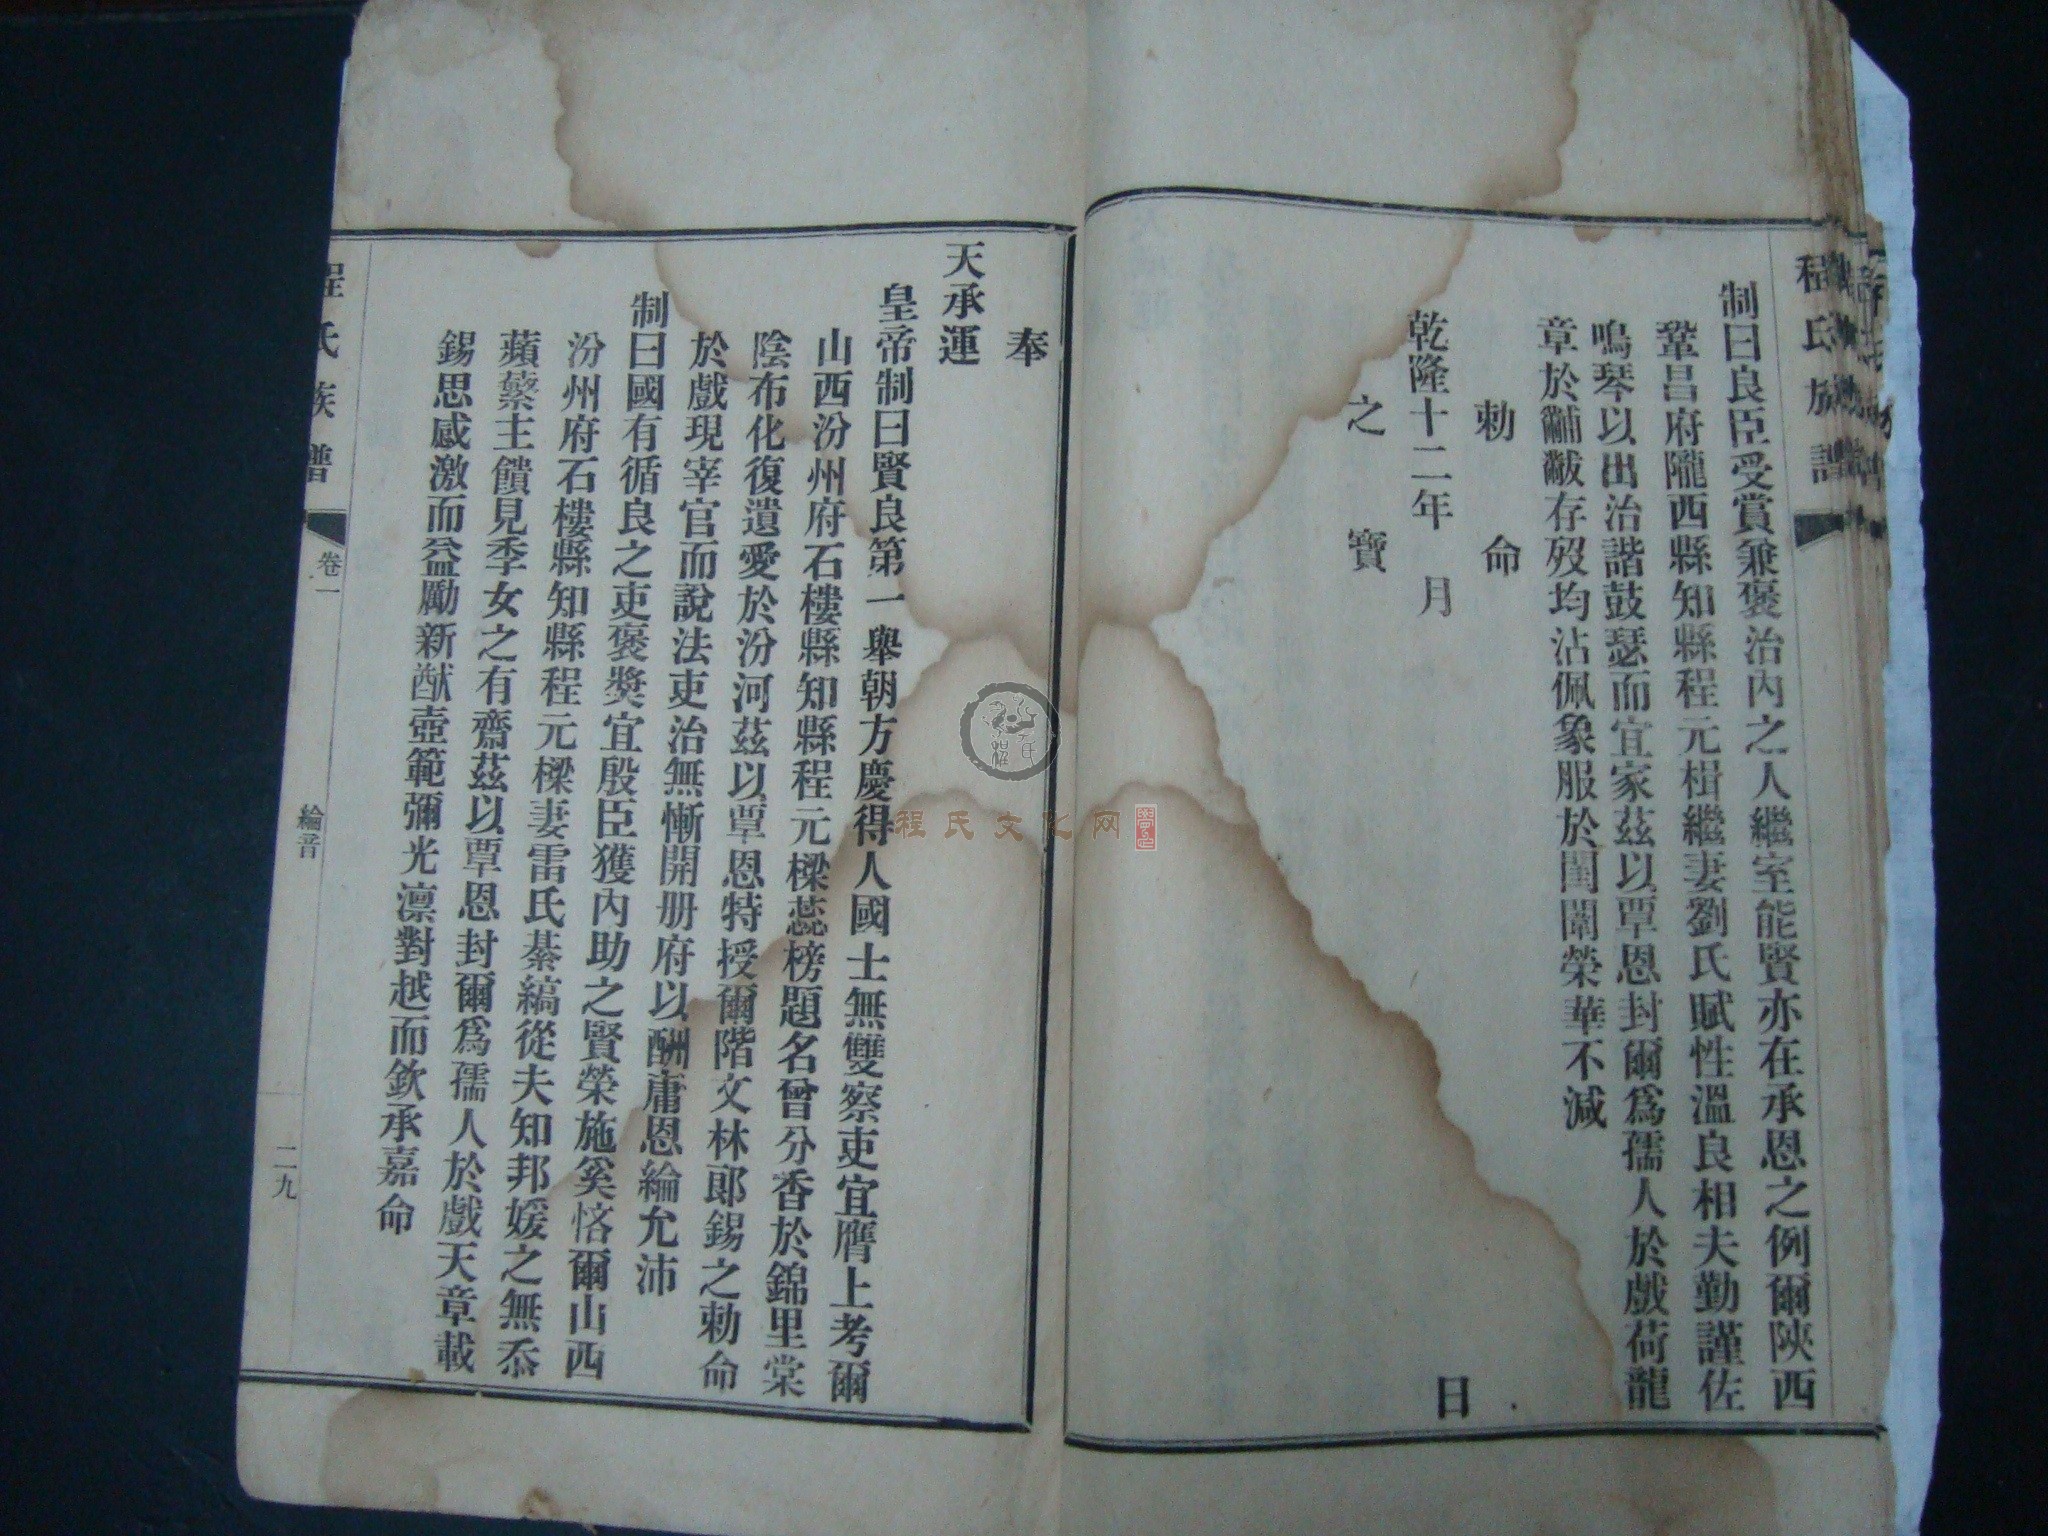 程氏族譜
制曰良臣受賞兼褒治內之人繼室能賢亦在承恩之例爾陝西
鞏昌府隴西縣知縣程元楫繼妻劉氏賦性溫良相夫勤謹佐
鳴琴以出治諧鼓瑟而宜家茲以覃恩封爾爲孺人於戲荷龍
章於黼黻存歿均沾佩象服於閨闈榮華不減
勅命
乾隆十二年月日
之寶
奉
天承運
皇帝制曰賢良第一舉朝方慶得人國士無雙察吏宜膺上考爾
山西汾州府石樓縣知縣程元樑蕊榜題名曾分香於錦里棠
陰布化復遺愛於汾河茲以覃恩特授爾階文林郎錫之勅命
於戲現宰官而說法吏治無慚開册府以酬庸恩綸允沛
制曰國有循良之吏褒獎宜殷臣獲內助之賢榮施奚恡爾山西
汾州府石樓縣知縣程元樑妻雷氏綦縞從夫知邦媛之無忝
蘋蘩主饋見季女之有齋茲以覃恩封爾爲孺人於戲天章載
錫思感激而益勵新猷壼範彌光凛對越而欽承嘉命
程氏族譜
卷一
綸音
二九
程氏文化网